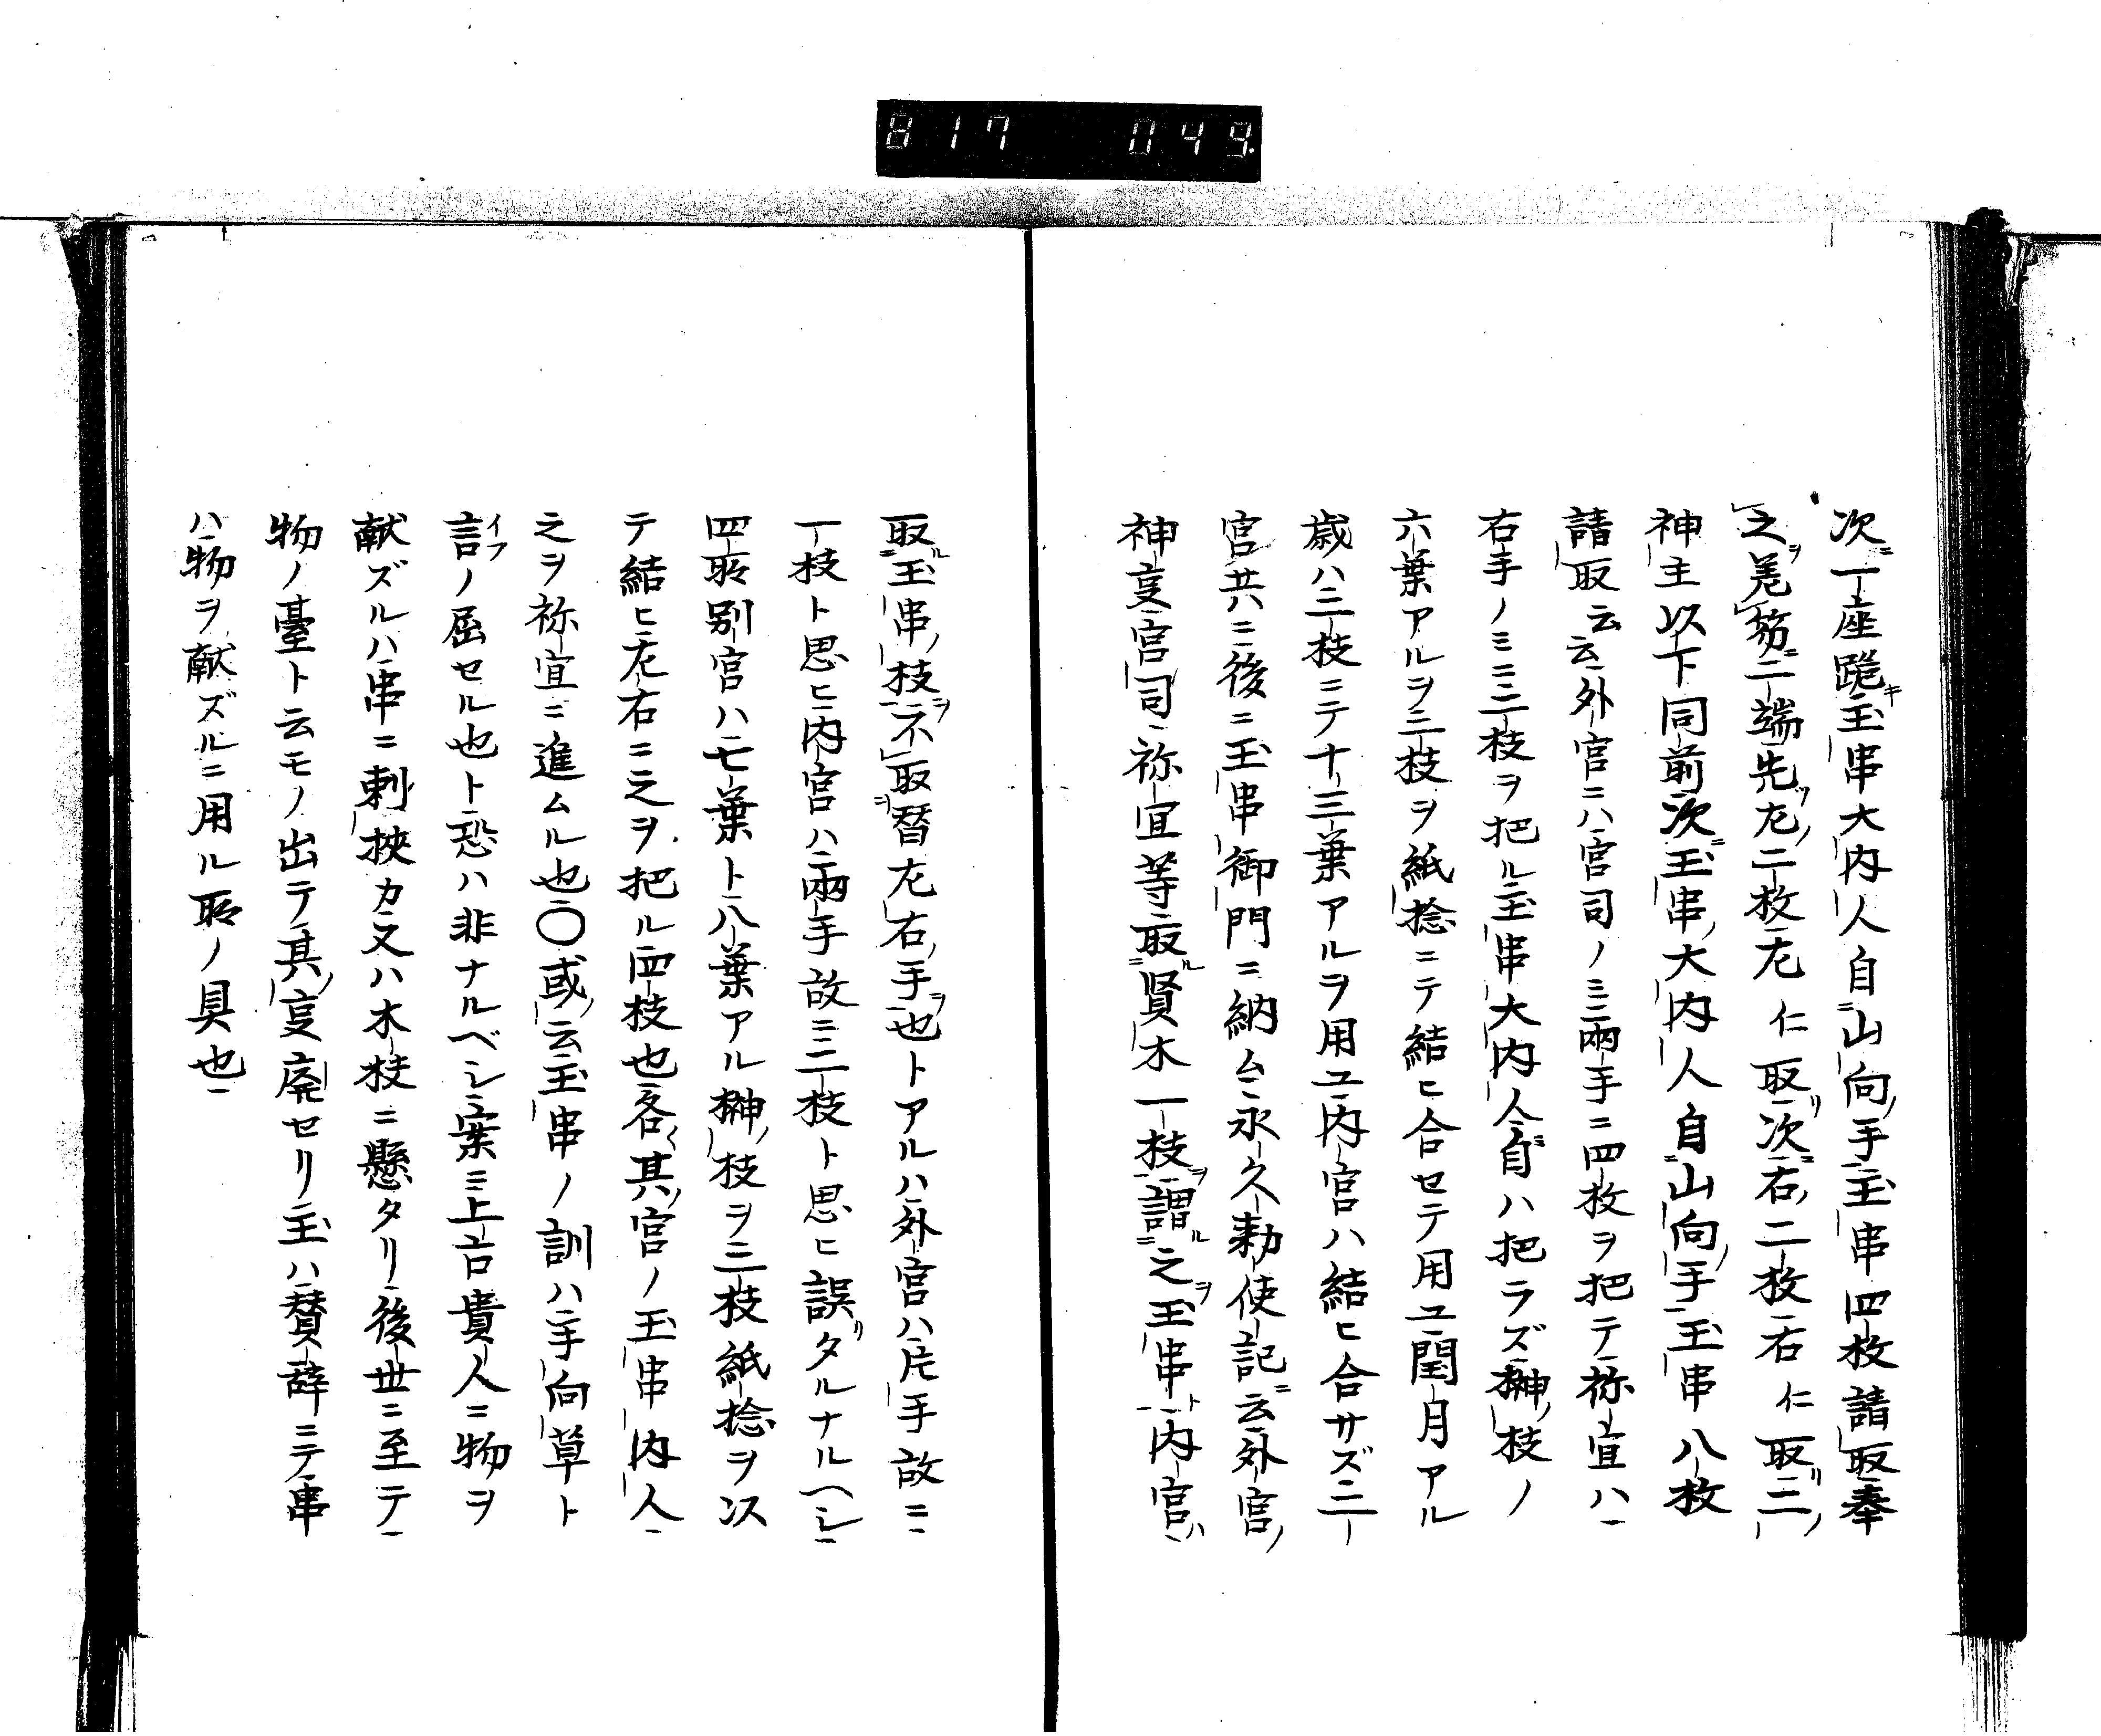 817 049
次一座跪玉串大内人自山向手玉串四枚請取奉
之羌笏二端先左二枚左仁取次右二枚右仁取二
神主以下同前次玉串大内人自山向手玉串八枚
請取云云外官ニハ宮司ノミ兩手ニ四枚ヲ把テ祢宜ハ
右手ノミニ二枝ヲ把ル玉串大内人自ハ把ラズ榊枝ノ
六葉アルヲ二枝ヲ紙捻ニテ結ヒ合セテ用ユ閏月アル
歳ハ三枝ミテ十三葉アルヲ用ユ内宮ハ結ヒ合サズ二
宮共ハニ後ニ玉串御門ニ納ム永久勅使記云外宮
神事宮司祢宜等取賢木一枝謂之玉串内宮ハ
取玉串枝不取替左右手也トアルハ外宮ハ片手故ニ
一枝ト思ヒ内宮ハ兩手故ミ二枝ト思ヒ誤タルナルヘシ
四所別宮ハ七葉ト八葉アル榊枝ヲ二枝紙捻ヲ以
テ結ヒ左右ニ之ヲ把ル四枝也各其宮ノ玉串内人
之ヲ祢宜ニ進ムル也〇或云玉串ノ訓ハ手向草ト
言ノ屈セル也ト恐ハ非ナルベシ案ミ上古貴人ニ物ヲ
献ズルハ串ニ刺挾カ又ハ木枝ニ懸タリ後世ニ至テ
物ノ臺ト云モノ出テ其事廃セリ玉ハ賛辞ミテ串
ハ物ヲ献ズルニ用ル所ノ具也